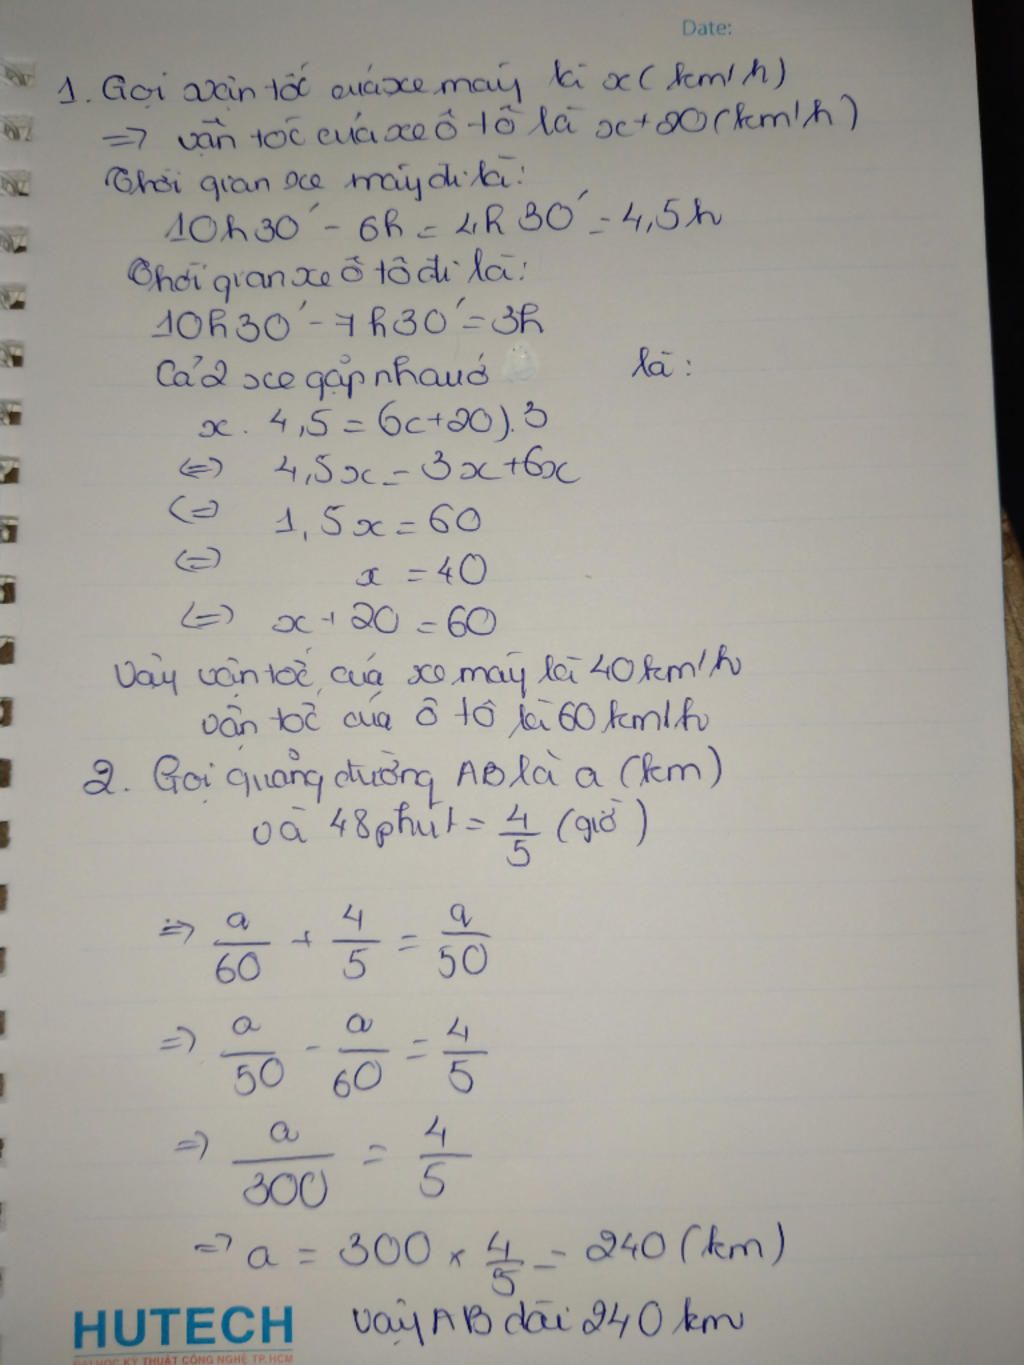 Date:
1. Gọi vận tốc của xe máy là x (km/h)
=> vận tốc của xe ô tô là x+20 (km/h)
Thời gian xe máy đi là:
10h30' - 6h = 4h30' = 4,5h
Thời gian xe ô tô đi là:
10h30' - 7h30' = 3h
Cả 2 xe gặp nhau ở là:
x. 4,5 = (x+20).3
<=> 4,5x = 3x+6x
<=> 1,5x = 60
<=> x = 40
<=> x + 20 = 60
Vậy vận tốc của xe máy là 40km/h
vận tốc của ô tô là 60km/h
2. Gọi quảng đường AB là a (km)
và 48 phút = 4/5 (giờ)
=> a/60 + 4/5 = a/50
=> a/50 - a/60 = 4/5
=> a/300 = 4/5
=> a = 300 × 4/5 = 240 (km)
Vậy AB dài 240 km
HUTECH
ĐẠI HỌC KỸ THUẬT CÔNG NGHỆ TP.HCM